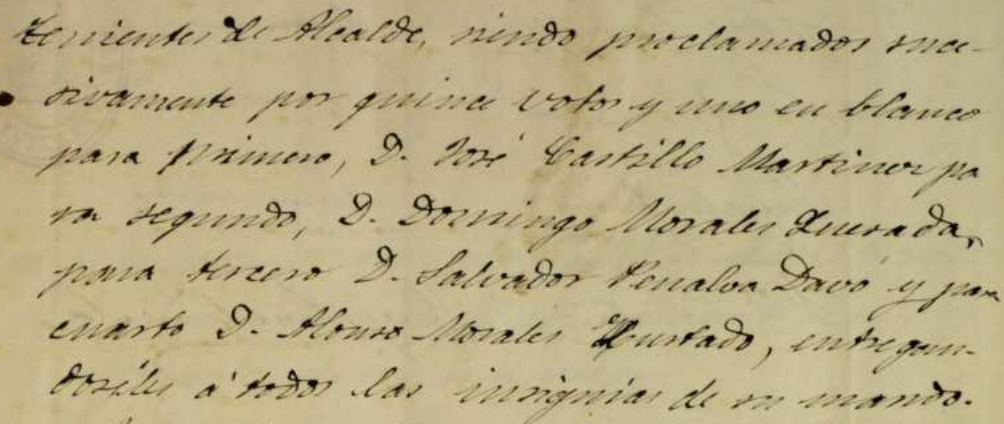 tenientes de Alcalde, siendo proclamados suce-
sivamente por quince votos y uno en blanco
para primero, D. José Castillo Martinez pa
ra segundo, D. Domingo Morales Quesada,
para tercero D. Salvador Penalva Davó y para
cuarto D. Alonso Morales Hurtado, entregan-
doséles á todos las insignias de su mando.